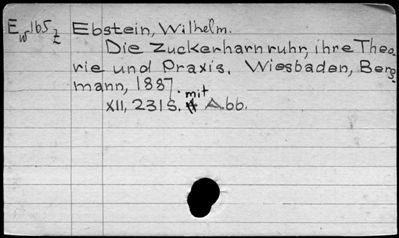 Ew165z Ebstein, Wilhelm.
Die Zuckerharnruhr, ihre Theo
rie und Praxis. Wiesbaden, Berg
mann, 1887.
XII, 231 S. mit Abb.